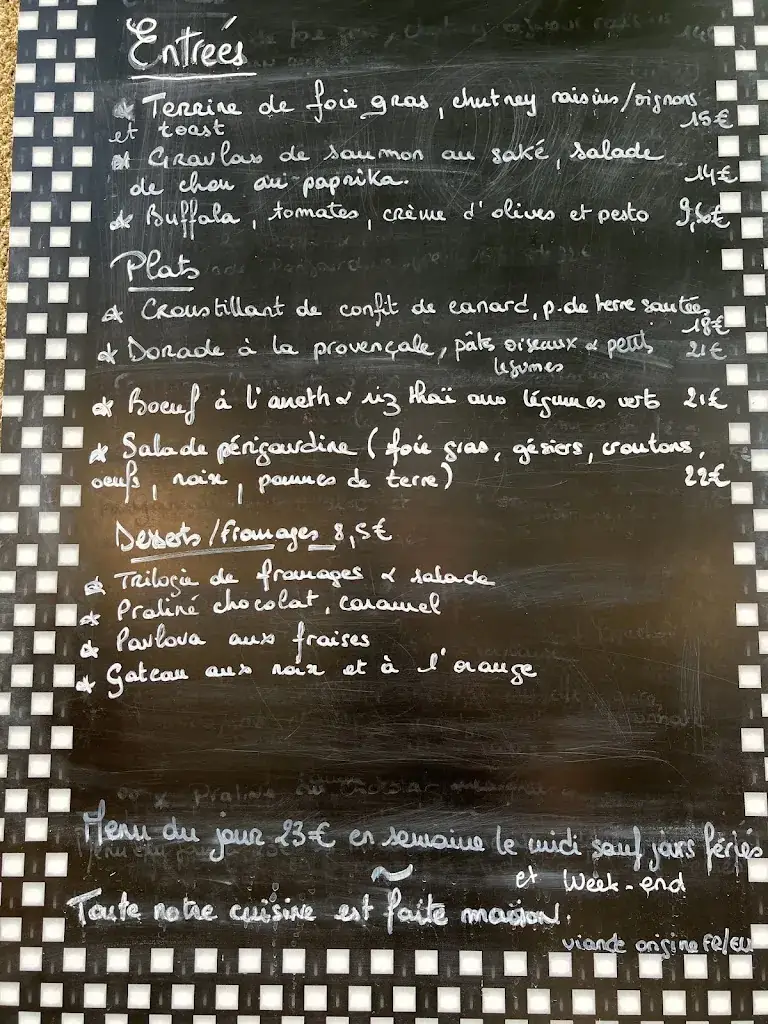 Entreés
Terrine de foie gras, chutney raisins/oignons
et toast 15€
Gravlax de saumon au saké, salade
de chou au paprika. 14€
Buffala, tomates, crème d'olives et pesto 9,50€
Plats
Croustillant de confit de canard, p. de terre sautées
18€
Dorade à la provençale, pâtes oiseaux & petits 21€
légumes
Boeuf à l'aneth & riz thaï aux légumes verts 21€
Salade périgourdine (foie gras, gésiers, croutons,
oeufs, noix, pommes de terre) 22€
Desserts/Fromages 8,5€
Trilogie de fromages & salade
Praliné chocolat, caramel
Pavlova aux fraises
Gateau aux noix et à l'orange
Menu du jour 23€ en semaine le midi sauf jours fériés
et Week-end
Toute notre cuisine est faite maison.
viande origine FR/EU